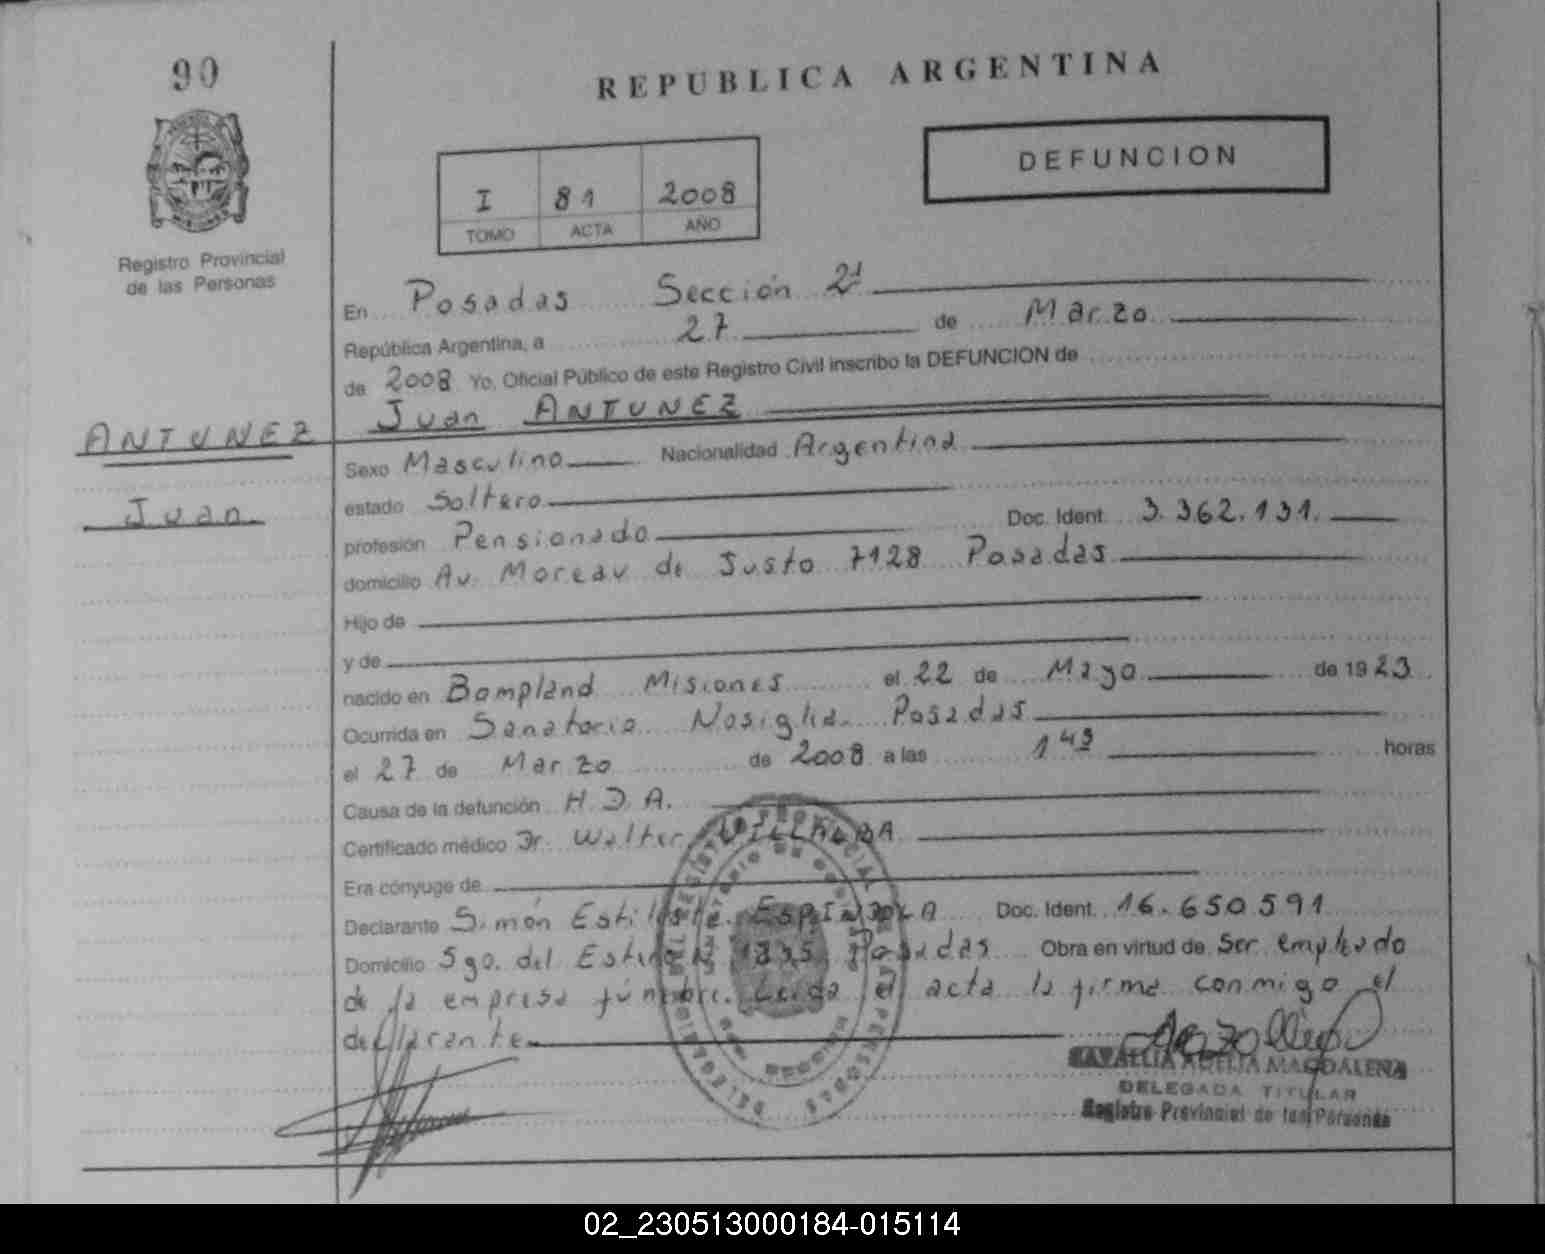 90
REPUBLICA ARGENTINA
DEFUNCION
I 81 2008
TOMO ACTA AÑO
Registro Provincial
de las Personas
En Posadas Sección 2ª
República Argentina, a 27 de Marzo
de 2008 Yo, Oficial Público de este Registro Civil inscribo la DEFUNCION de
Juan ANTUNEZ
ANTUNEZ
Juan
Sexo Masculino Nacionalidad Argentina
estado Soltero
profesión Pensionado Doc. Ident. 3.362.131.
domicilio Av. Moreau de Justo 7128 Posadas
Hijo de
y de
nacido en Bompland Misiones el 22 de Mayo de 1923
Ocurrida en Sanatorio Nosiglia Posadas
el 27 de Marzo de 2008 a las 1 43 horas
Causa de la defunción H.D.A.
Certificado médico Dr. Walter
Era cónyuge de
Declarante Simón ESPINDOLA Doc. Ident. 16.650.591
Domicilio Sgo. del Estero 1835 Posadas Obra en virtud de Ser empleado
de la empresa fúnebre. Leida el acta la firma conmigo el
declarante
MAGDALENA
DELEGADA TITULAR
Registro Provincial de las Personas
02_230513000184-015114